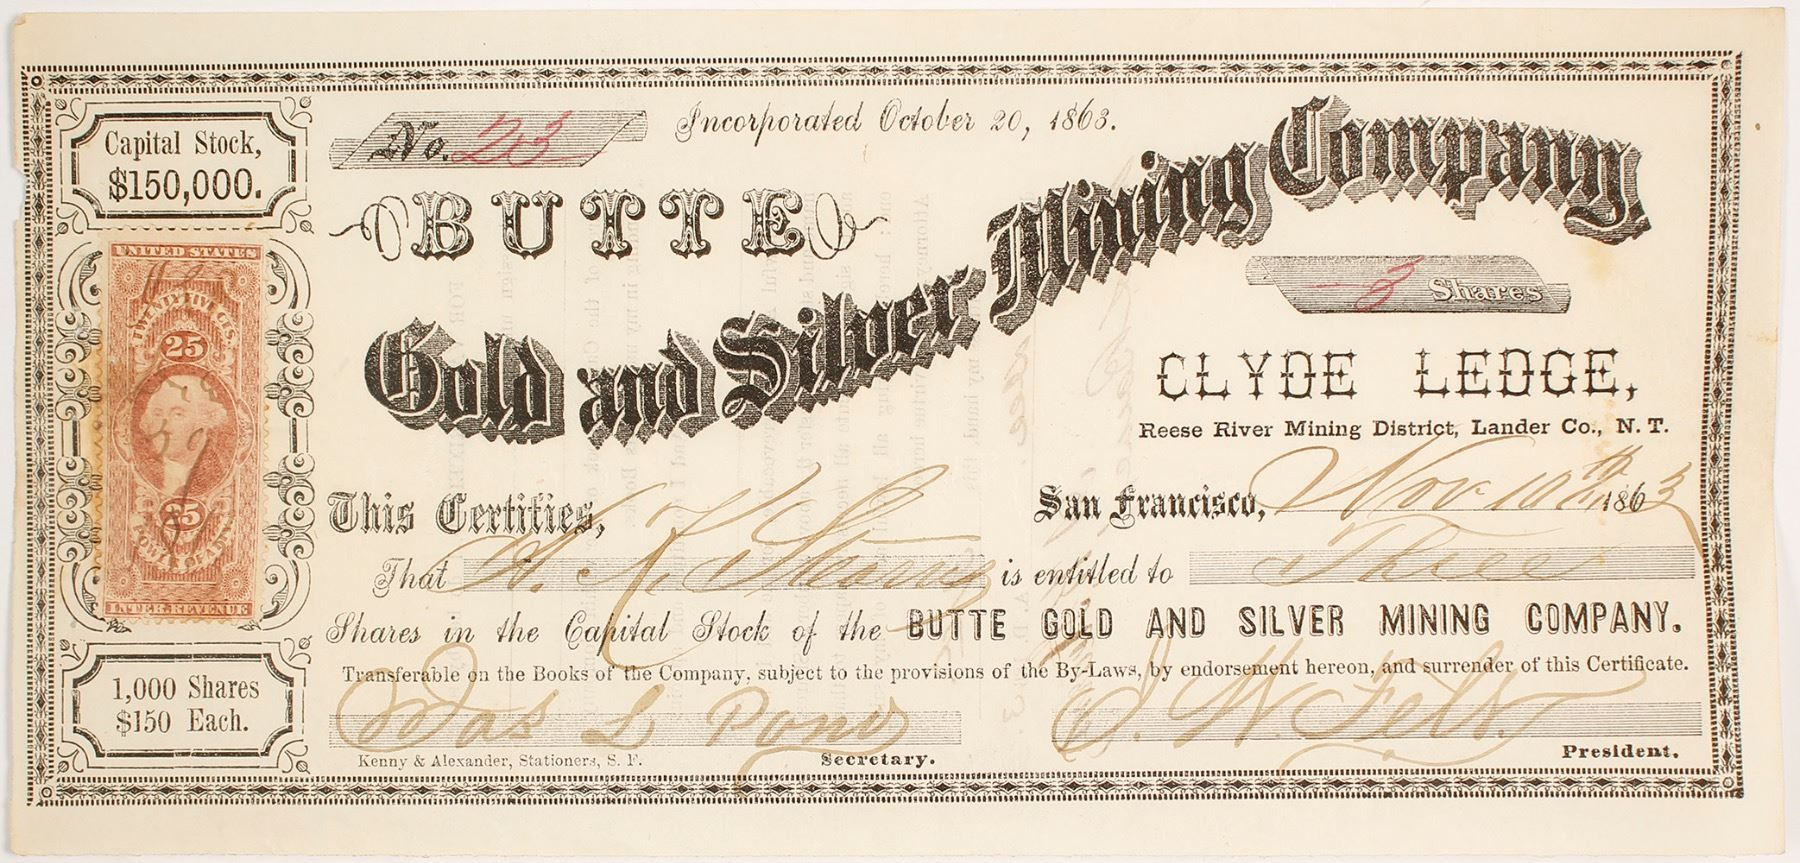 Capital Stock,
$150,000.
No. 23
Incorporated October 20, 1863.
BUTTE
Gold and Silver Mining Company
3 Shares
CLYDE LEDGE,
Reese River Mining District, Lander Co., N. T.
UNITED STATES
TWENTY FIVE CTS.
25
25
POWER OF ATT'Y
INTER. REVENUE
This Certifies,
San Francisco, Nov 10th 1863
That A. K. Stearns is entitled to Three
Shares in the Capital Stock of the BUTTE GOLD AND SILVER MINING COMPANY.
Transferable on the Books of the Company, subject to the provisions of the By-Laws, by endorsement hereon, and surrender of this Certificate.
1,000 Shares
$150 Each.
L Pond
J. W. Felt.
Kenny & Alexander, Stationers, S. F.
Secretary.
President.